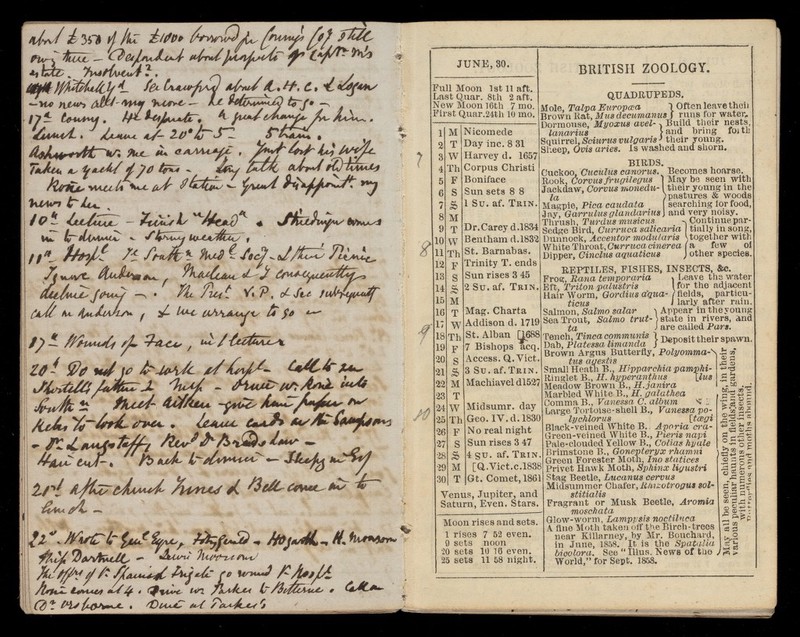 about £350 of the £1000 borrowed
still
owing there - Despondent about prospects of Capt
estate. Insolvent?.
See Crawford about A.H.C. & Logan
- no news - he determined to go -
17th County. He desperate. A great change for him.
Lunch. Leave at 20 to 5 -
Ashworth w. me in carriage. Just lost his wife
Taken a yacht of 70 tons - Long talk about old times
Rosie meets me at Station - Great disappoint. my
news to her.
10th Lecture - Finish "Head". comes
in to dinner - Stormy weather.
11th Hosp. Med. Soc'y
Ignore Anderson, Maclean & I consequently
decline going - . The Prest. V.P. & Sec subsequently
call on Anderson, & we arrange to go
17th Wounds of Face, lecture
20th Do not go to work at hospl - Call to see
father & - Drive w. Rosie into
South Meet Aitken - give him paper on
to look over. Leave cards on the Sampsons
- Dr Langstaff, Revd Dr Bradshaw -
Hair cut - . Back to dinner -
21st after church Innes & Bell come in to
lunch -
22d - Wrote to Genl Eyre, Fitzgerald - Hogarth - H.
Miss Dartnell -
The offrs of Spanish Frigate go round Hospl
Rosie comes at 4. Drive w. Parkes to Bitterne. Call on
Dr Osborne. Dine at Parkes's
JUNE, 30.
Full Moon 1st 11 aft.
Last Quar. 8th 2 aft.
New Moon 16th 7 mo.
First Quar. 24th 10 mo.
1 M Nicomede
2 T Day inc. 8 31
3 W Harvey d. 1657
4 Th Corpus Christi
5 F Boniface
6 S Sun sets 8 8
7 S 1 SU. AF. TRIN.
8 M
9 T Dr. Carey d. 1834
10 W Bentham d. 1832
11 Th St. Barnabas.
12 F Trinity T. ends
13 S Sun rises 3 45
14 S 2 SU. AF. TRIN.
15 M
16 T Mag. Charta
17 W Addison d. 1719
18 Th St. Alban [1688
19 F 7 Bishops acq.
20 S Access. Q. Vict.
21 S 3 SU. AF. TRIN.
22 M Machiavel d1527
23 T
24 W Midsumr. day
25 Th Geo. IV. d. 1830
26 F No real night
27 S Sun rises 3 47
28 S 4 SU. AF. TRIN.
29 M [Q. Vict. c. 1838
30 T Gt. Comet, 1861
Venus, Jupiter, and
Saturn, Even. Stars.
Moon rises and sets.
1 rises 7 52 even.
9 sets noon
20 sets 10 16 even.
25 sets 11 58 night.
BRITISH ZOOLOGY.
QUADRUPEDS.
Mole, Talpa Europæa } Often leave their
Brown Rat, Mus decumanus } runs for water.
Dormouse, Myoxus avel- } Build their nests,
lanarius } and bring forth
Squirrel, Sciurus vulgaris } their young.
Sheep, Ovis aries. Is washed and shorn.
BIRDS.
Cuckoo, Cuculus canorus. Becomes hoarse.
Rook, Corvus frugilegus } May be seen with
Jackdaw, Corvus monedu- } their young in the
la } pastures & woods
Magpie, Pica caudata } searching for food,
Jay, Garrulus glandarius } and very noisy.
Thrush, Turdus musicus } Continue par-
Sedge Bird, Curruca salicaria } tially in song,
Dunnock, Accentor modularis } together with
White Throat, Curruca cinerea } a few of
Dipper, Cinclus aquaticus } other species.
REPTILES, FISHES, INSECTS, &c.
Frog, Rana temporaria } Leave the water
Eft, Triton palustris } for the adjacent
Hair Worm, Gordius aqua- } fields, particu-
ticus } larly after rain.
Salmon, Salmo salar } Appear in the young
Sea Trout, Salmo trut- } state in rivers, and
ta } are called Pars.
Tench, Tinca communis } Deposit their spawn.
Dab, Platessa limanda }
Brown Argus Butterfly, Polyomma-
tus agestis
Small Heath B., Hipparchia pamphi-
Ringlet B., H. hyperanthus [lus
Meadow Brown B., H. janira
Marbled White B., H. galathea
Comma B., Vanessa C. album
Large Tortoise-shell B., Vanessa po-
lychloros [tægi
Black-veined White B. Aporia cra-
Green-veined White B., Pieris napi
Pale-clouded Yellow B., Colias hyale
Brimstone B., Gonepteryx rhamni
Green Forester Moth, Ino statices
Privet Hawk Moth, Sphinx ligustri
Stag Beetle, Lucanus cervus
Midsummer Chafer, Rhizotrogus sol-
stitialis
Fragrant or Musk Beetle, Aromia
moschata
Glow-worm, Lampysis noctiluca
A fine Moth taken off the Birch-trees
near Killarney, by Mr. Bouchard,
in June, 1858. It is the Spatalia
bicolora. See "Illus. News of the
World," for Sept. 1858.
May all be seen, chiefly on the wing, in their
various peculiar haunts in fields and gardens,
with numerous other insects.